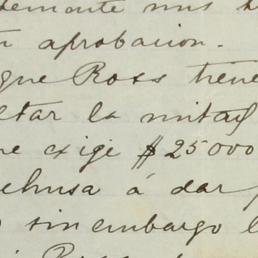 demonte mis
aprobacion.
que Ross tiene
ltar la mitad
exige $25000
ehusa á dar
sin embargo
Ross